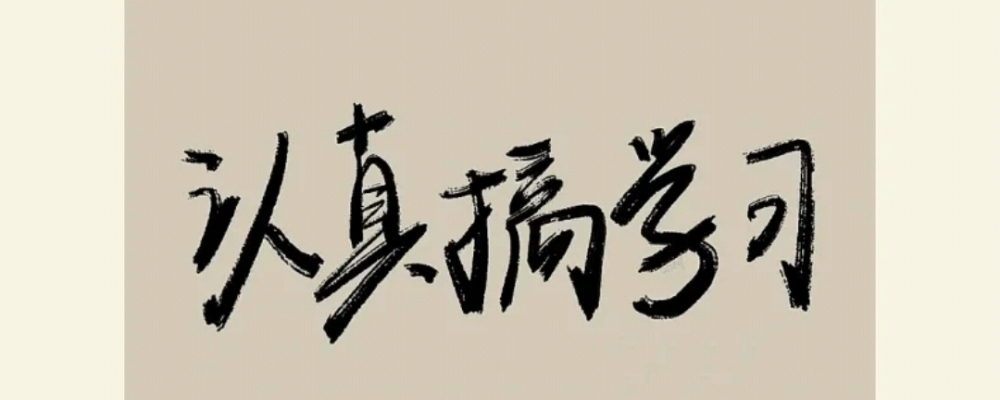 认真搞学习